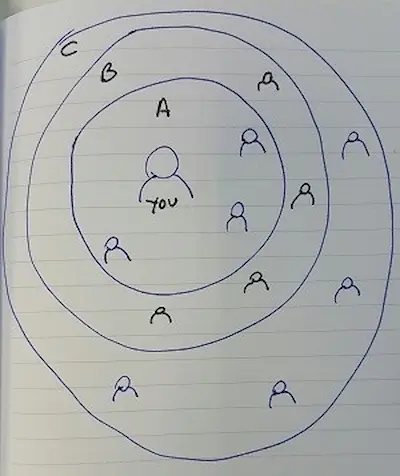 C
B
A
YOU